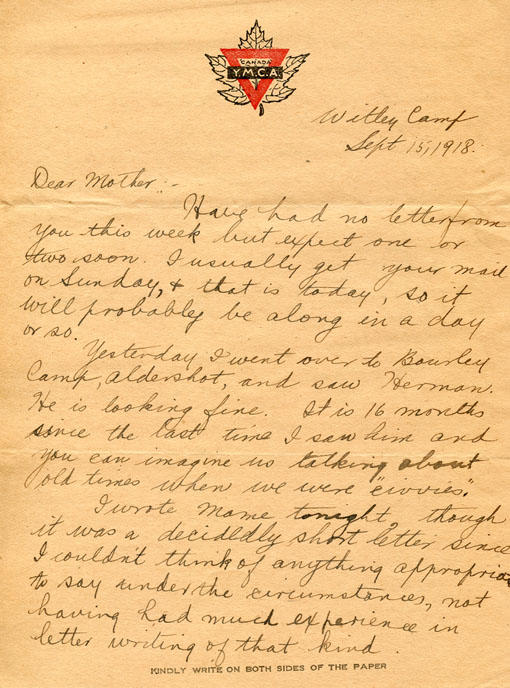 CANADA
Y.M.C.A.
Witley Camp
Sept 15, 1918.
Dear Mother:-
Have had no letter from
you this week but expect one or
two soon. I usually get your mail
on Sunday, & that is today, so it
will probably be along in a day
or so.
Yesterday I went over to Bourley
Camp, Aldershot, and saw Herman.
He is looking fine. It is 16 months
since the last time I saw him and
you can imagine us talking about
old times when we were "civvies".
I wrote Mame tonight, though
it was a decidedly short letter since
I couldn't think of anything appropriate
to say under the circumstances, not
having had much experience in
letter writing of that kind.
KINDLY WRITE ON BOTH SIDES OF THE PAPER